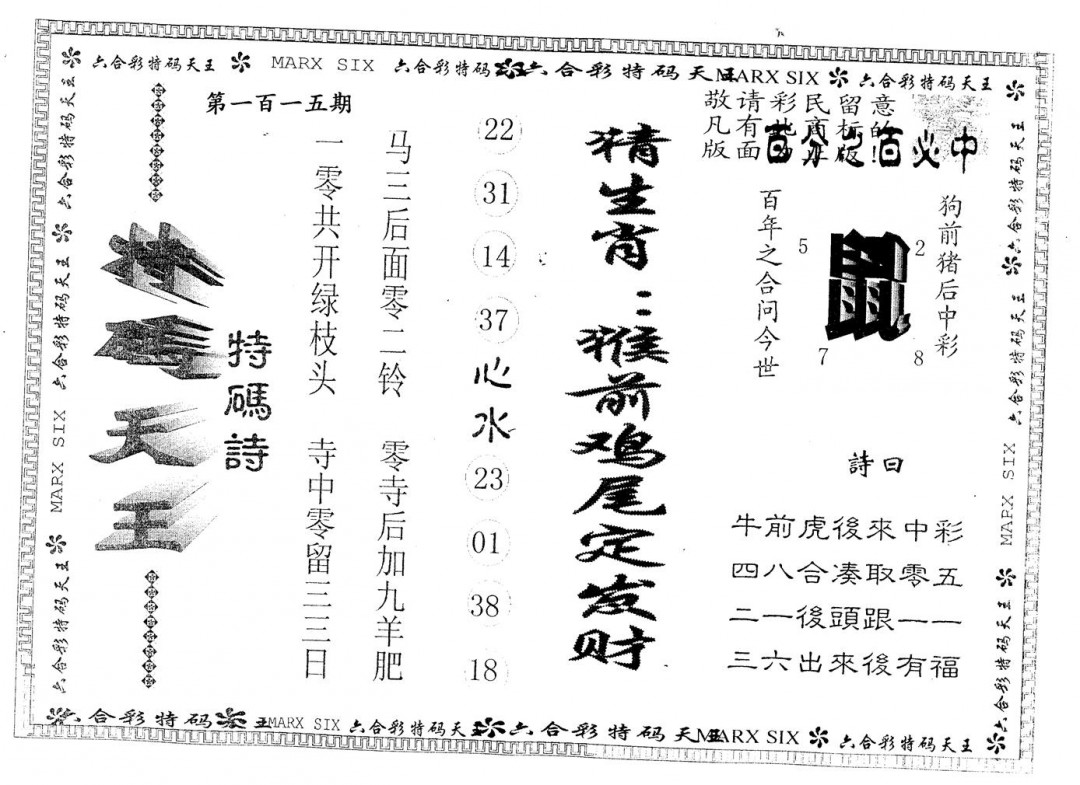 六合彩特码天王 MARX SIX 六合彩特码 六合彩特码天王 MARX SIX 六合彩特码天王
第一百一五期
敬请彩民留意
凡有此商标的
版面
百分之百必中
特码天王
特碼詩
一零共开绿枝头 寺中零留三三日
马三后面零二铃 零寺后加九羊肥
22
31
14
37
心水
23
01
38
18
猜生肖：猴前鸡尾定发财
百年之合问今世
5
鼠
2
7
8
狗前猪后中彩
詩曰
牛前虎後來中彩
四八合凑取零五
二一後頭跟一一
三六出來後有福
六合彩特码天王 MARX SIX 六合彩特码天王 六合彩特码天王
六合彩特码天王 六合彩特码天王 MARX SIX 六合彩特码天王
六合彩特码 王 MARX SIX 六合彩特码天王 六合彩特码天 MARX SIX 六合彩特码天王